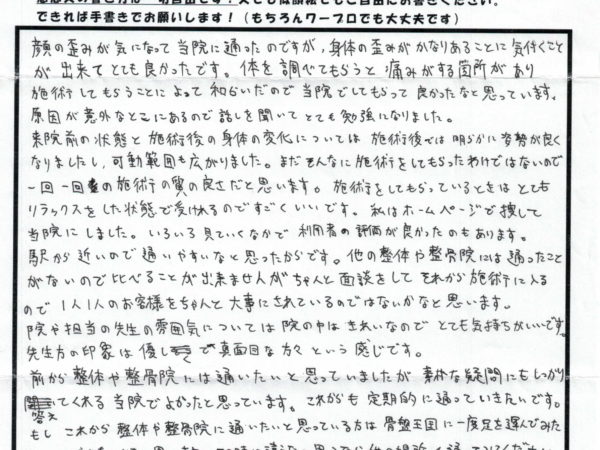 できれば手書きでお願いします!(もちろんワープロでも大丈夫です)
顔の歪みが気になって当院に通ったのですが,身体の歪みがかなりあることに気付くこと
が出来てとても良かったです。体を調べてもらうと痛みがする箇所があり
施術してもらうことによって和らいだので当院でしてもらって良かったなと思っています。
原因が意外なところにあるので話しを聞いてとても勉強になりました。
来院前の状態と施術後の身体の変化については施術後では明らかに姿勢が良く
なりましたし,可動範囲も広がりました。まだそんなに施術をしてもらったわけではないので
一回一回の施術の質の良さだと思います。施術をしてもらっているときはとても
リラックスをした状態で受けれるのですごくいいです。私はホームページで捜して
当院にしました。いろいろ見ていくなかで利用者の評価が良かったのもあります。
駅から近いので通いやすいなと思ったからです。他の整体や整骨院には通ったこと
がないので比べることが出来ませんがちゃんと面談をしてそれから施術に入る
ので1人1人のお客様をちゃんと大事にされているのではないかなと思います。
院や担当の先生の雰囲気については院の中はきれいなのでとても気持ちがいいです。
先生方の印象は優しくて真面目な方々という感じです。
前から整体や整骨院には通いたいと思っていましたが素朴な疑問にもしっかり
答えてくれる当院でよかったと思っています。これからも定期的に通っていきたいです。
もしこれから整体や整骨院に通いたいと思っている方は骨盤王国に一度足を運んでみた